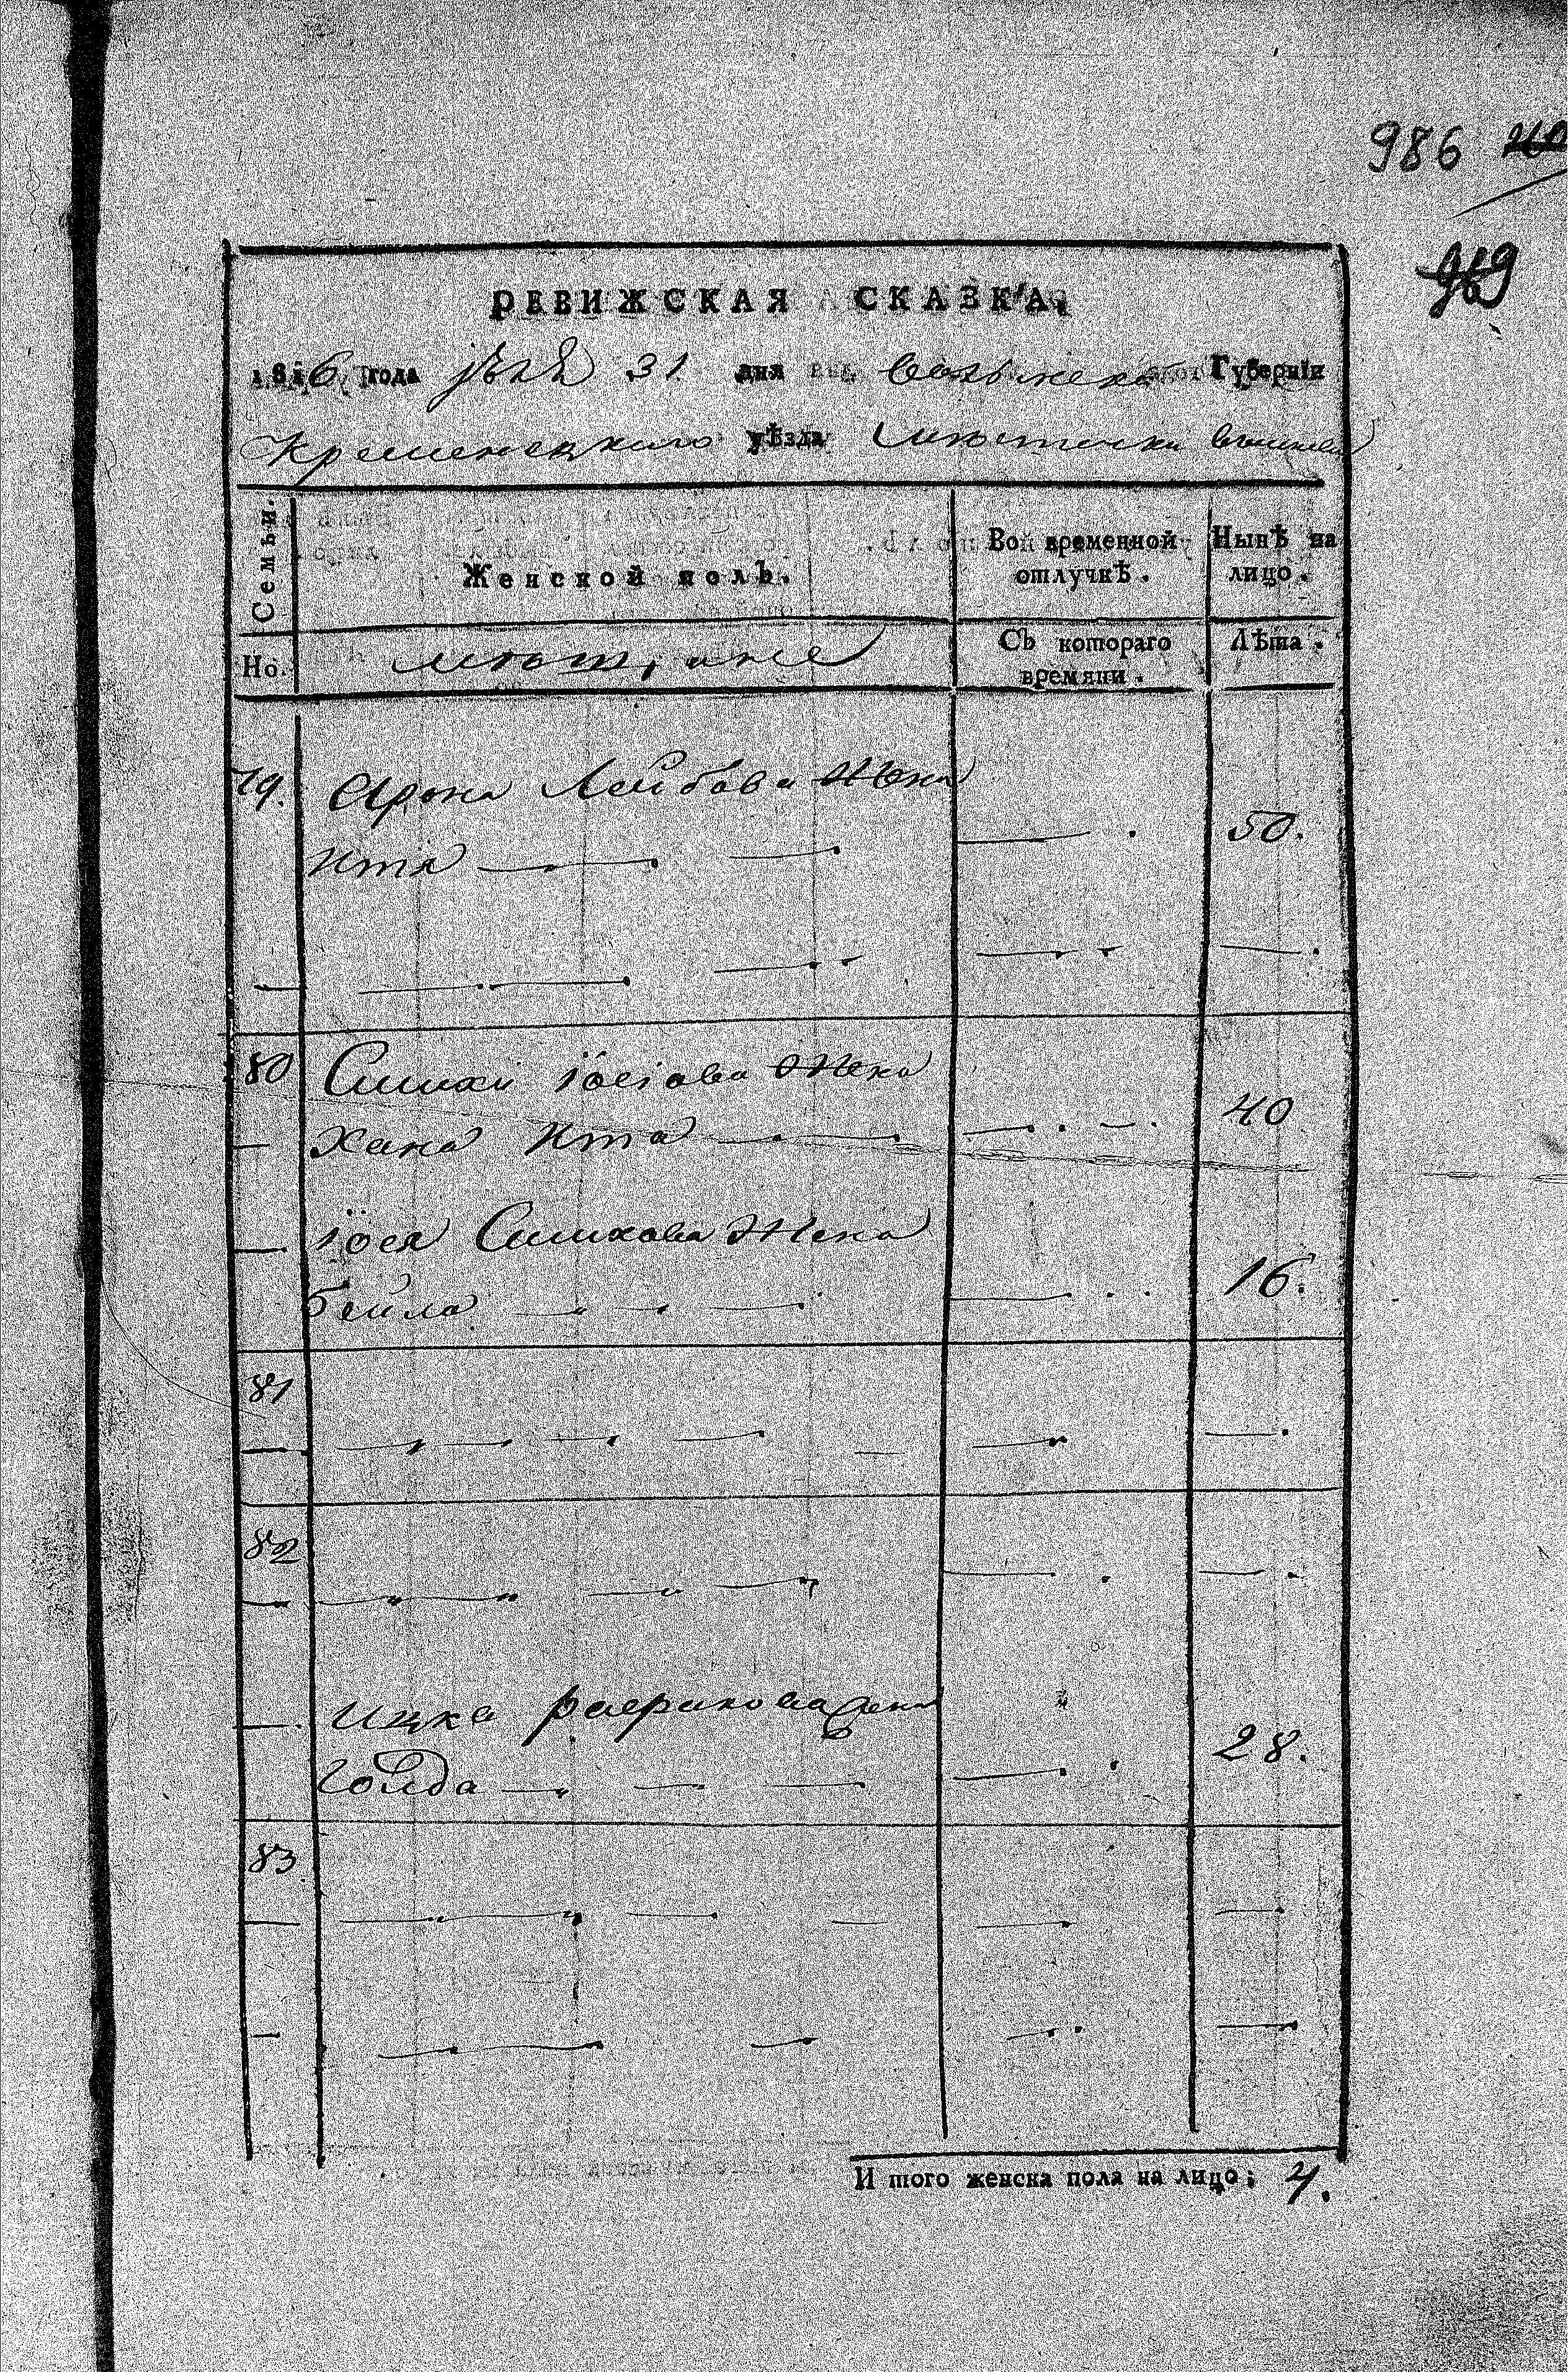 986
969
РЕВИЖСКАЯ СКАЗКА,
1816 года 31 дня Волынской Губерніи
Кременецкаго уѣзда мѣстечки
Семьи.
Женской полъ.
Во временной отлучкѣ.
Нынѣ на лицо.
Но.
мѣщане
Съ котораго времяни.
Лѣта.
79. Арона Лейбова Жена
Ита 50.
80 Симхи Іосіова Жена
Хана Ита 40
Іося Симхова Жена
Бейла 16.
81
82
Ицка Жена
Голда 28.
83
И того женска пола на лицо; 4.